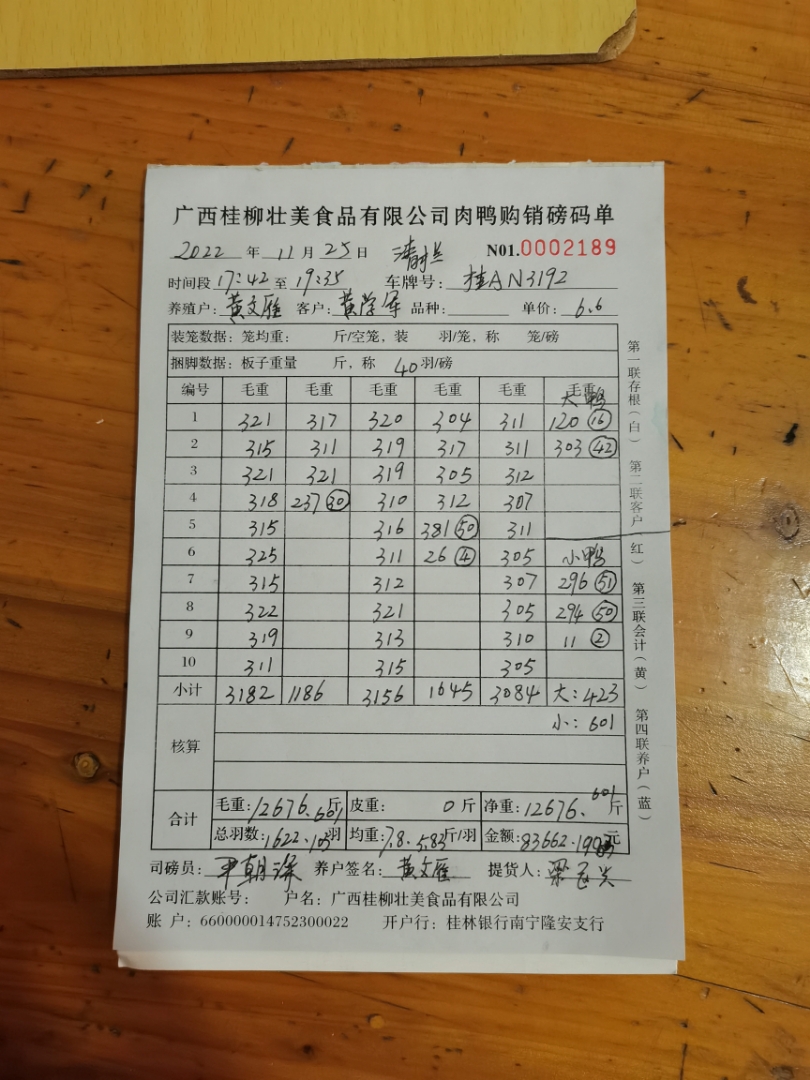 广西桂柳壮美食品有限公司肉鸭购销磅码单
2022 年 11 月 25 日 N01.0002189
时间段 17:42 至 19:35 车牌号: 桂AN3192
养殖户: 黄文雁 客户: 黄学军 品种: 单价: 6.6
装笼数据: 笼均重: 斤/空笼, 装 羽/笼, 称 笼/磅
捆脚数据: 板子重量 斤, 称 40 羽/磅
编号 毛重 毛重 毛重 毛重 毛重 毛重
大鸭
1 321 317 320 304 311 120 (16)
2 315 311 319 317 311 303 (42)
3 321 321 319 305 312
4 318 237 (30) 310 312 307
5 315 316 381 (50) 311
6 325 311 26 (4) 305 小鸭
7 315 312 307 296 (51)
8 322 321 305 294 (50)
9 319 313 310 11 (2)
10 311 315 305
小计 3182 1186 3156 1645 3084 大: 423
小: 601
核算
合计
毛重: 12676. 601 斤 皮重: 0 斤 净重: 12676. 601 斤
总羽数: 1622. 103 羽 均重: 7.8. 5.83 斤/羽 金额: 83662. 元
司磅员: 养户签名: 黄文雁 提货人:
公司汇款账号: 户名: 广西桂柳壮美食品有限公司
账 户: 660000014752300022 开户行: 桂林银行南宁隆安支行
第一联存根(白) 第二联客户(红) 第三联会计(黄) 第四联养户(蓝)